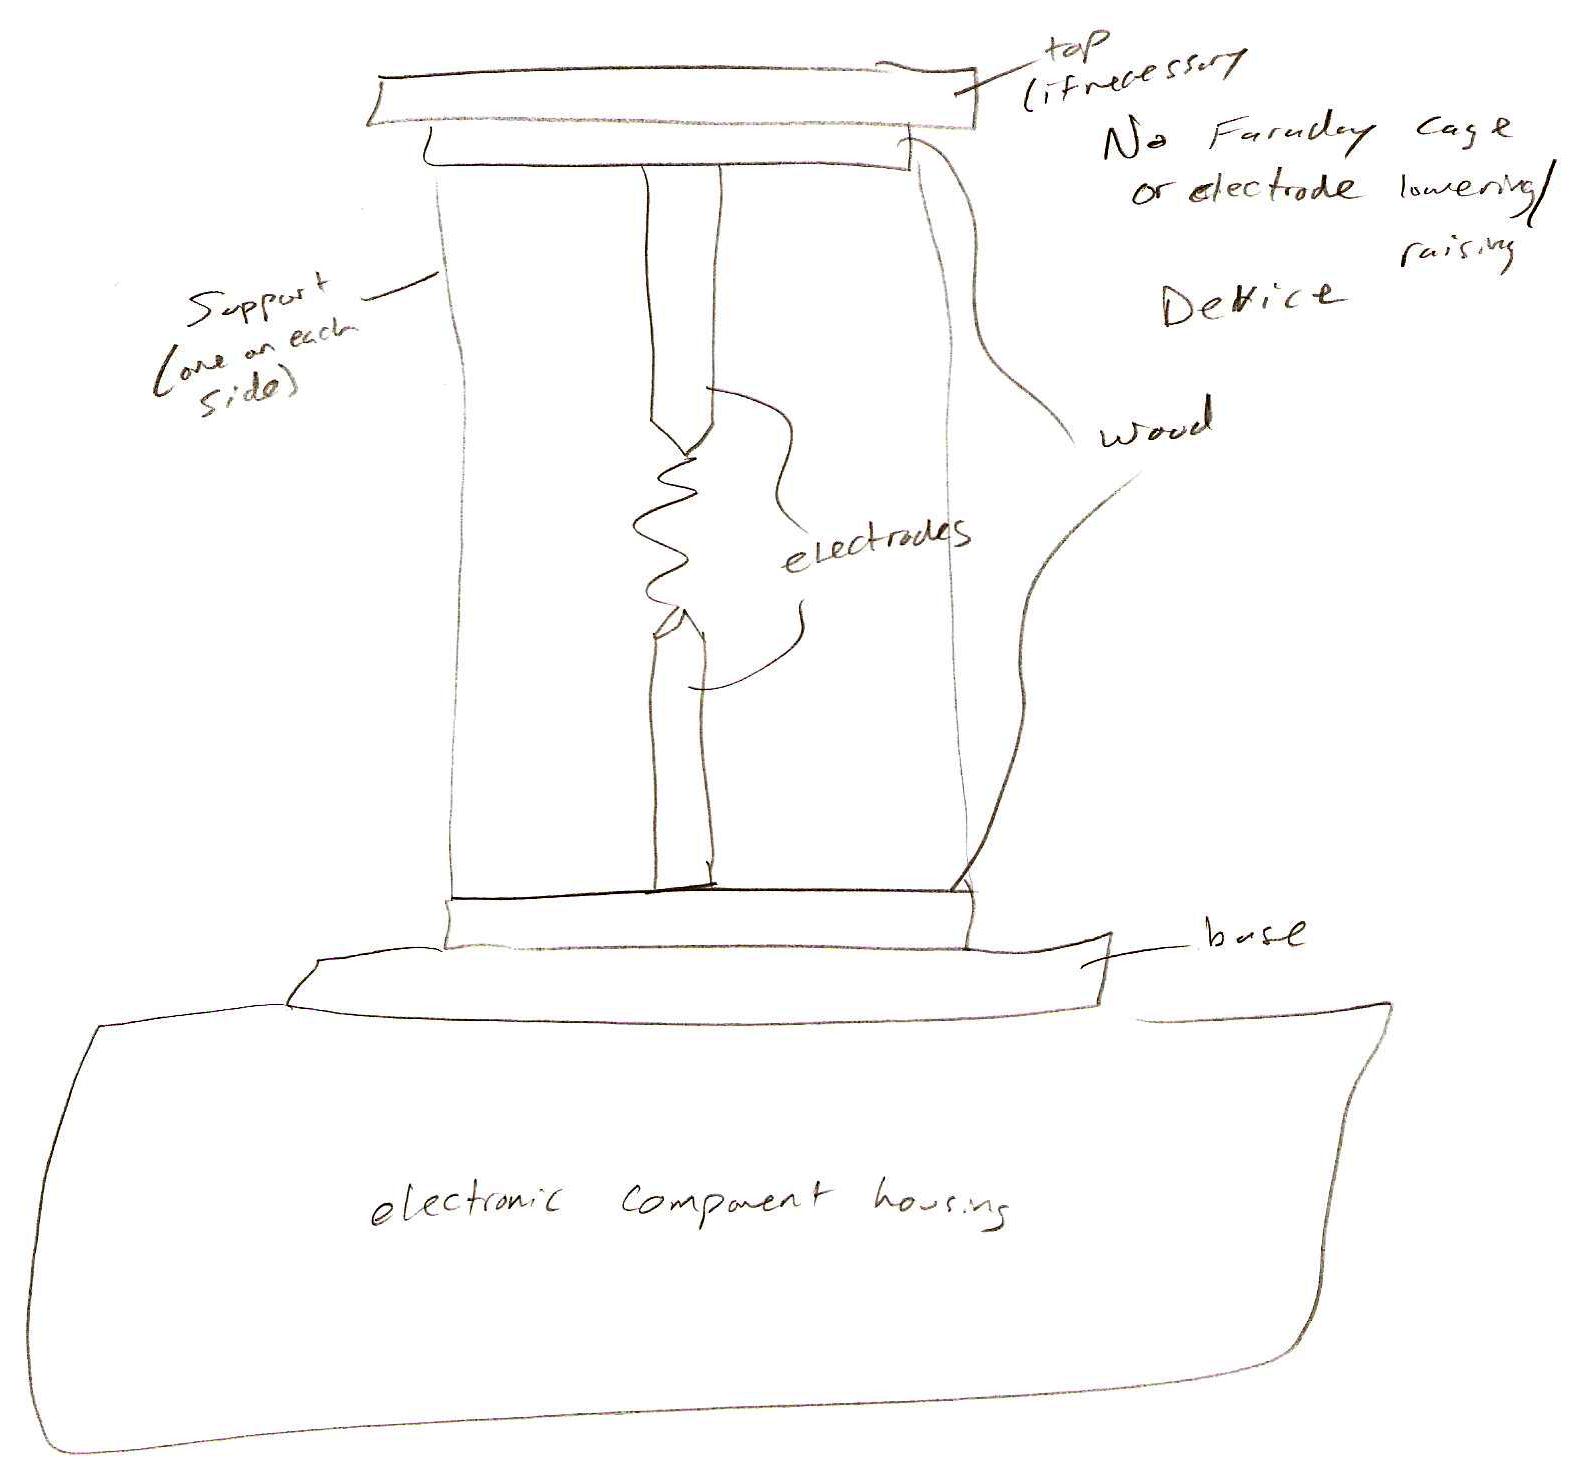 top
(if necessary
No Faraday cage
or electrode lowering/
raising
Device
Support
(one on each
side)
wood
electrodes
base
electronic component housing